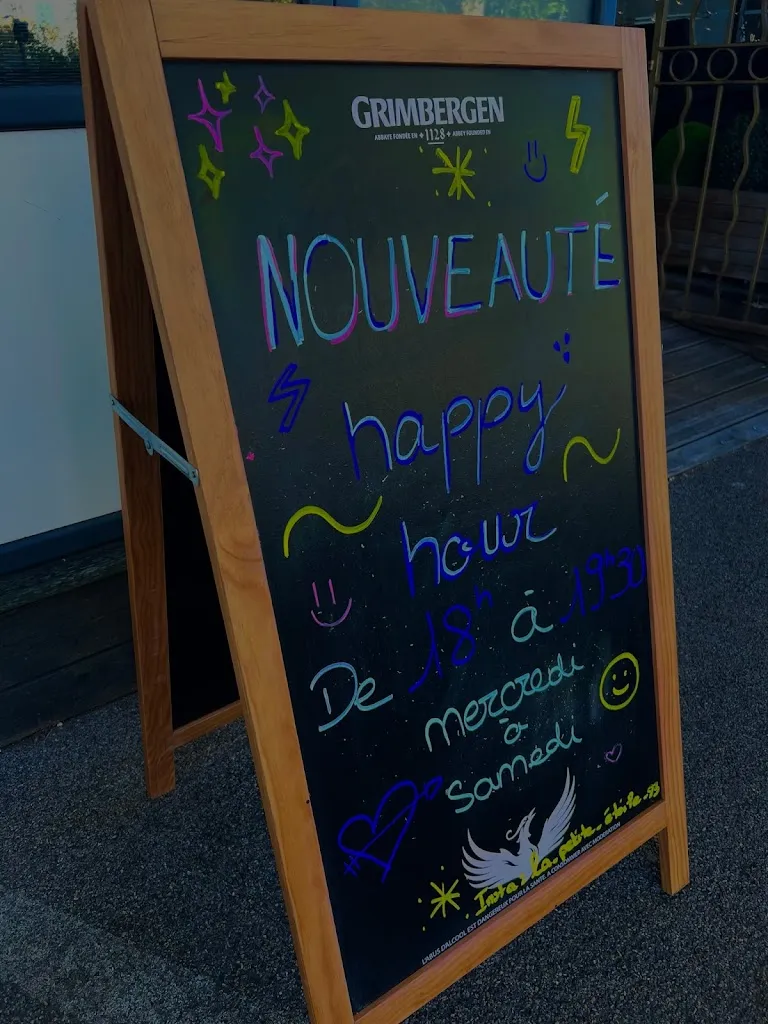 GRIMBERGEN
ABBAYE FONDÉE EN 1128 ABBEY FOUNDED IN
NOUVEAUTÉ
happy
hour
De 18h à 19h30
mercredi
à
samedi
Insta : la.petite.etoile.93
L'ABUS D'ALCOOL EST DANGEREUX POUR LA SANTÉ. À CONSOMMER AVEC MODÉRATION